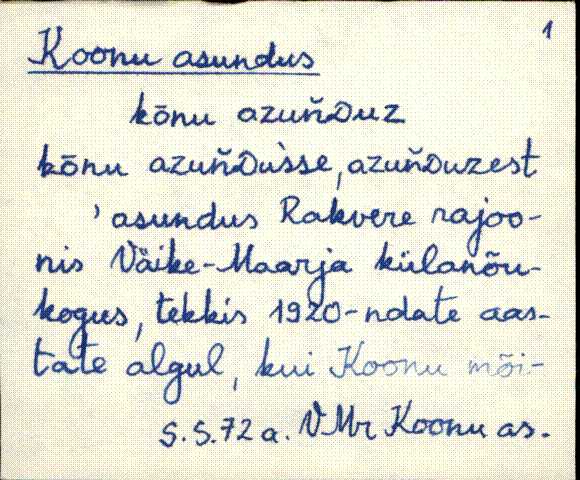 1
Koonu asundus
kōnu azuňᴅuz
kōnu azuňᴅus̀se, azuňᴅuzest
' asundus Rakvere rajoo-
nis Väike-Maarja külanõu-
kogus, tekkis 1920-ndate aas-
tate algul, kui Koonu mõi-
S.S.72 a. VMr Koonu as.